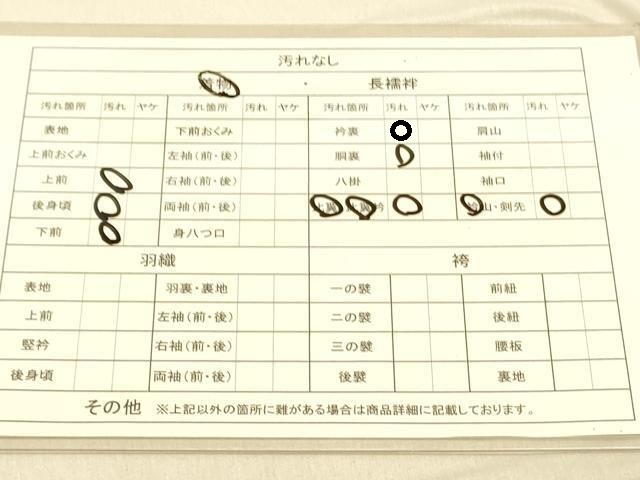 汚れなし
着物 ・ 長襦袢
汚れ箇所 汚れ ヤケ 汚れ箇所 汚れ ヤケ 汚れ箇所 汚れ ヤケ 汚れ箇所 汚れ ヤケ
表地 下前おくみ 衿裏 肩山
上前おくみ 左袖(前・後) 胴裏 袖付
上前 右袖(前・後) 八掛 袖口
後身頃 両袖(前・後) 比翼 比翼衿 衿山・剣先
下前 身八つ口
羽織 袴
表地 羽裏・裏地 一の襞 前紐
上前 左袖(前・後) 二の襞 後紐
竪衿 右袖(前・後) 三の襞 腰板
後身頃 両袖(前・後) 後襞 裏地
その他 ※上記以外の箇所に難がある場合は商品詳細に記載しております。